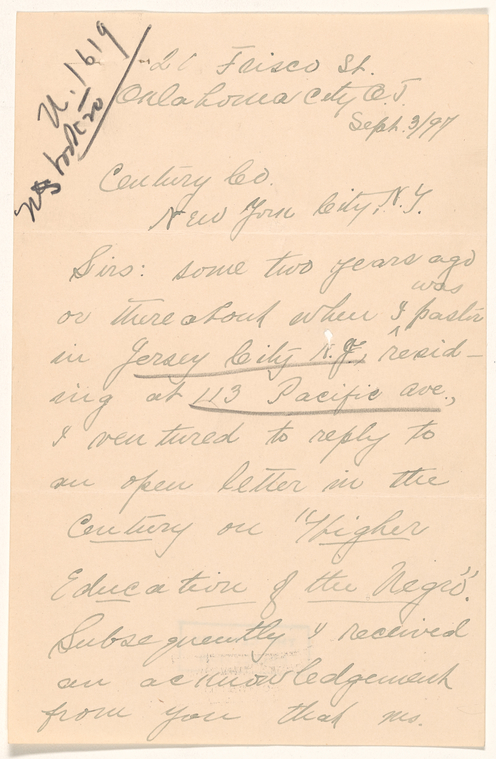 U. 1619
21 Frisco St.
Oklahoma City O.T.
Sept. 3/97
Century Co.
New York City, N.Y.
Sirs: some two years ago
was
or thereabout when I pastor
in Jersey City N.J., resid-
ing at 113 Pacific ave.,
I ventured to reply to
an open letter in the
Century on "Higher
Education of the Negro".
Subsequently I received
an acknowledgement
from you that ms.